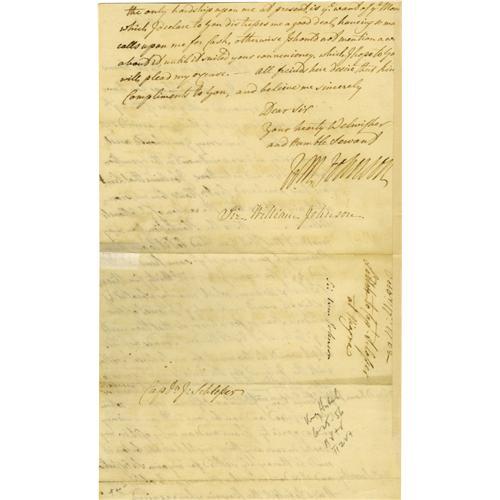 the only hardships upon me at present is ye. want of ye. Mon
which I declare to You distresses me a good deal, having so ma
calls upon me for Cash, otherwise I should not mention a w
about it until it suited your conveniency, which I hope to Yo
will plead my excuse. — all friends here desire their kin
Compliments to You, and believe me sincerely
Dear Sir
Your hearty Welwisher
and Humble Servant
Wm. Johnson
Sir William Johnson
Letter to Capt. Schlosser
at Niagra
Sir Wm Johnson
Capt. J. Schlosser